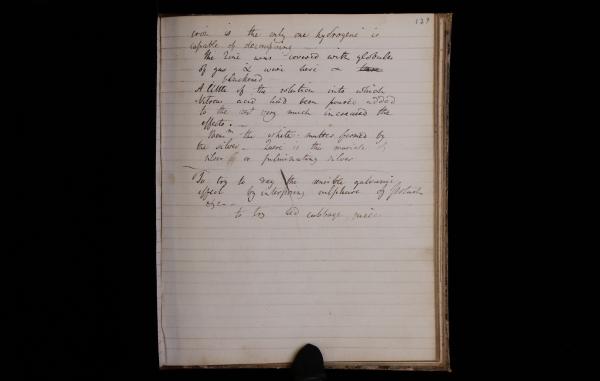 129
iron is the only one hydrogene is
capable of decomposing —
The Zinc was covered with globules
of gas & wire here &
blackened
A little of the solution into which
Nitrous acid had been poured added
to the rest very much increased the
effects. —
the white matter formed by
the silver — Quere is the muriate of
silver or fulminating silver
To try to vary the sensible galvanic
effect by interposing sulphure of Potash
&c —
to try red cabbage juice